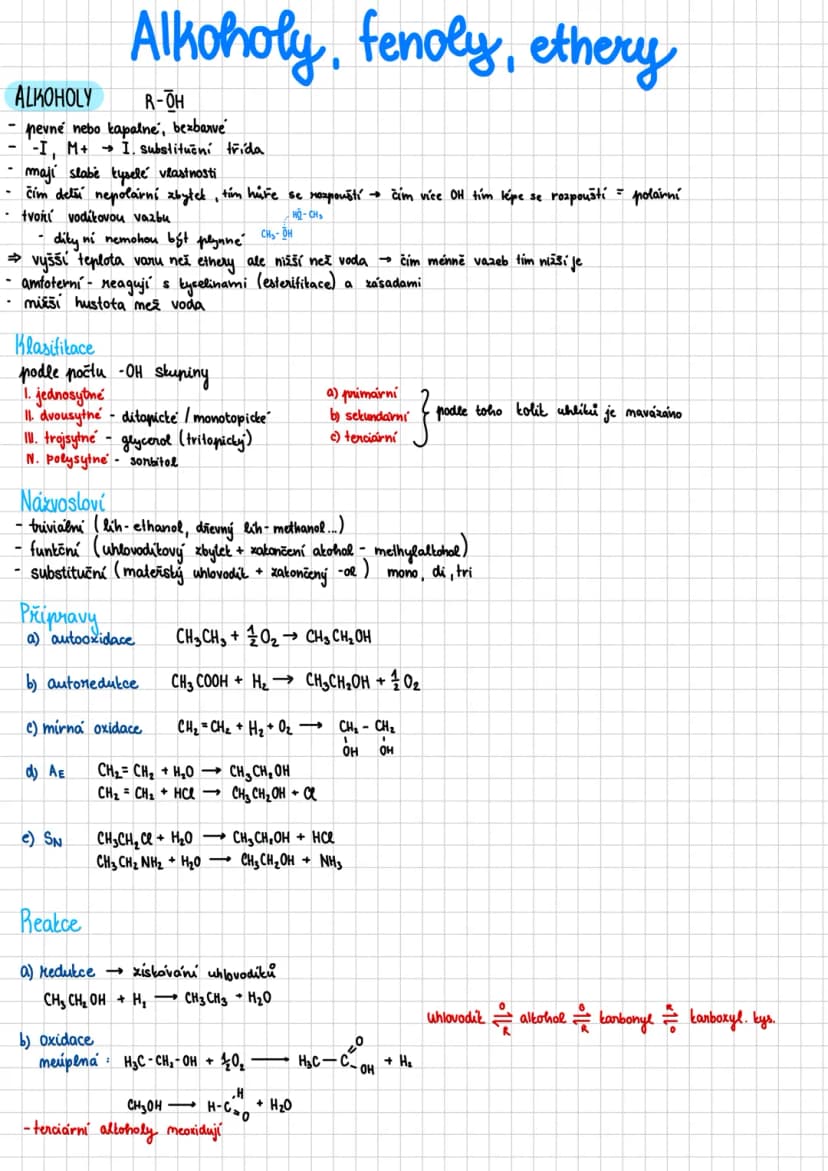 Alkoholy, fenoly, ethery
ALKOHOLY R-OH
- pevné nebo kapalné, bezbarvé
- -I, M+ → I. substituční třída
- mají slabě kyselé vlastnosti
- čím delší nepolární zbytek, tím hůře se rozpouští → čím více OH tím lépe se rozpouští = polární
- tvoří vodíkovou vazbu
HO-CH₃
- díky ní nemohou být plynné CH₃-OH
⇒ vyšší teplota varu než ethery ale nižší než voda → čím méně vazeb tím nižší je
- amfoterní - reagují s kyselinami (esterifikace) a zásadami
- nižší hustota než voda
Klasifikace
podle počtu -OH skupiny
I. jednosytné
II. dvousytné - ditopické / monotopické
III. trojsytné - glycerol (tritopický)
IV. polysytné - sorbitol
a) primární
b) sekundární
c) terciární
} podle toho kolik uhlíků je navázáno
Názvosloví
- triviální (líh-ethanol, dřevný líh-methanol...)
- funkční (uhlovodíkový zbytek + zakončení akohol - methylalkohol)
- substituční (mateřský uhlovodík + zakončený -ol) mono, di, tri
Přípravy
a) autooxidace CH₃CH₃ + ½O₂ → CH₃CH₂OH
b) autoredukce CH₃COOH + H₂ → CH₃CH₂OH + ½O₂
c) mírná oxidace CH₂=CH₂ + H₂ + O₂ → CH₂-CH₂
OH OH
d) AE CH₂=CH₂ + H₂O → CH₃CH₂OH
CH₂=CH₂ + HCl → CH₃CH₂OH + Cl
e) SN CH₃CH₂Cl + H₂O → CH₃CH₂OH + HCl
CH₃CH₂NH₂ + H₂O → CH₃CH₂OH + NH₃
Reakce
a) redukce → získávání uhlovodíků
CH₃CH₂OH + H₂ → CH₃CH₃ + H₂O
uhlovodík ⇌ alkohol ⇌ karbonyl ⇌ karboxyl. kys.
O O R
R R O
b) oxidace
neúplná: H₃C-CH₂-OH + ½O₂ → H₃C-C=O OH + H₂
CH₃OH → H-C H =O + H₂O
- terciární alkoholy neoxidují